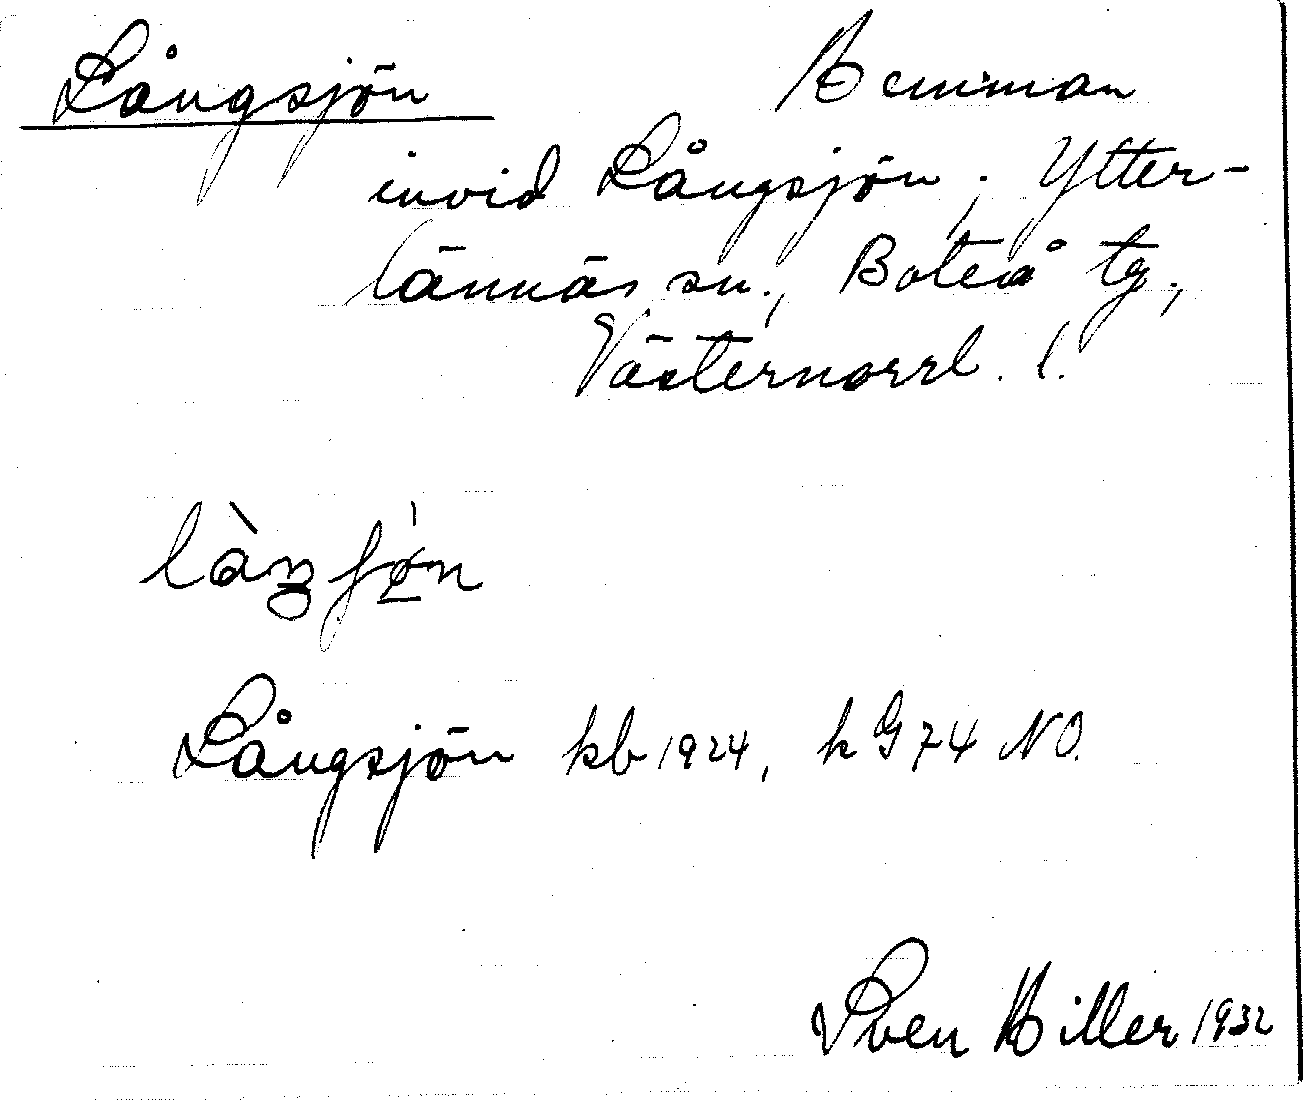 Långsjön Hemman
invid Långsjön, Ytter-
lännäs sn., Boteå tg,
Västernorrl. l.
Långsjön kb 1924, k G 74 NO.
Sven Hiller 1932